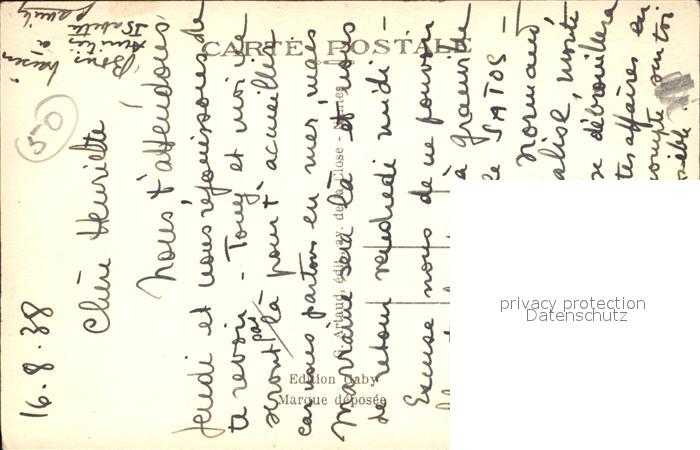 CARTE POSTALE
16.8.38
Chère Henriette
Nous t'attendons
jeudi et nous réjouissons de
te revoir - Tony et moi ne
seront pas là pour t'accueillir
car nous partons en mer, mais
Marraine sera là et nous
de retour vendredi midi -
Excuse nous de ne pouvoir
à
SATOS -
Normand
monté
se débrouillera
tes affaires en
compte sur toi
Bons baisers
amitiés à
Isabelle
famille
50
G. Artaud, édit., av. de la Close - Nantes
Edition Gaby
Marque déposée
privacy protection
Datenschutz